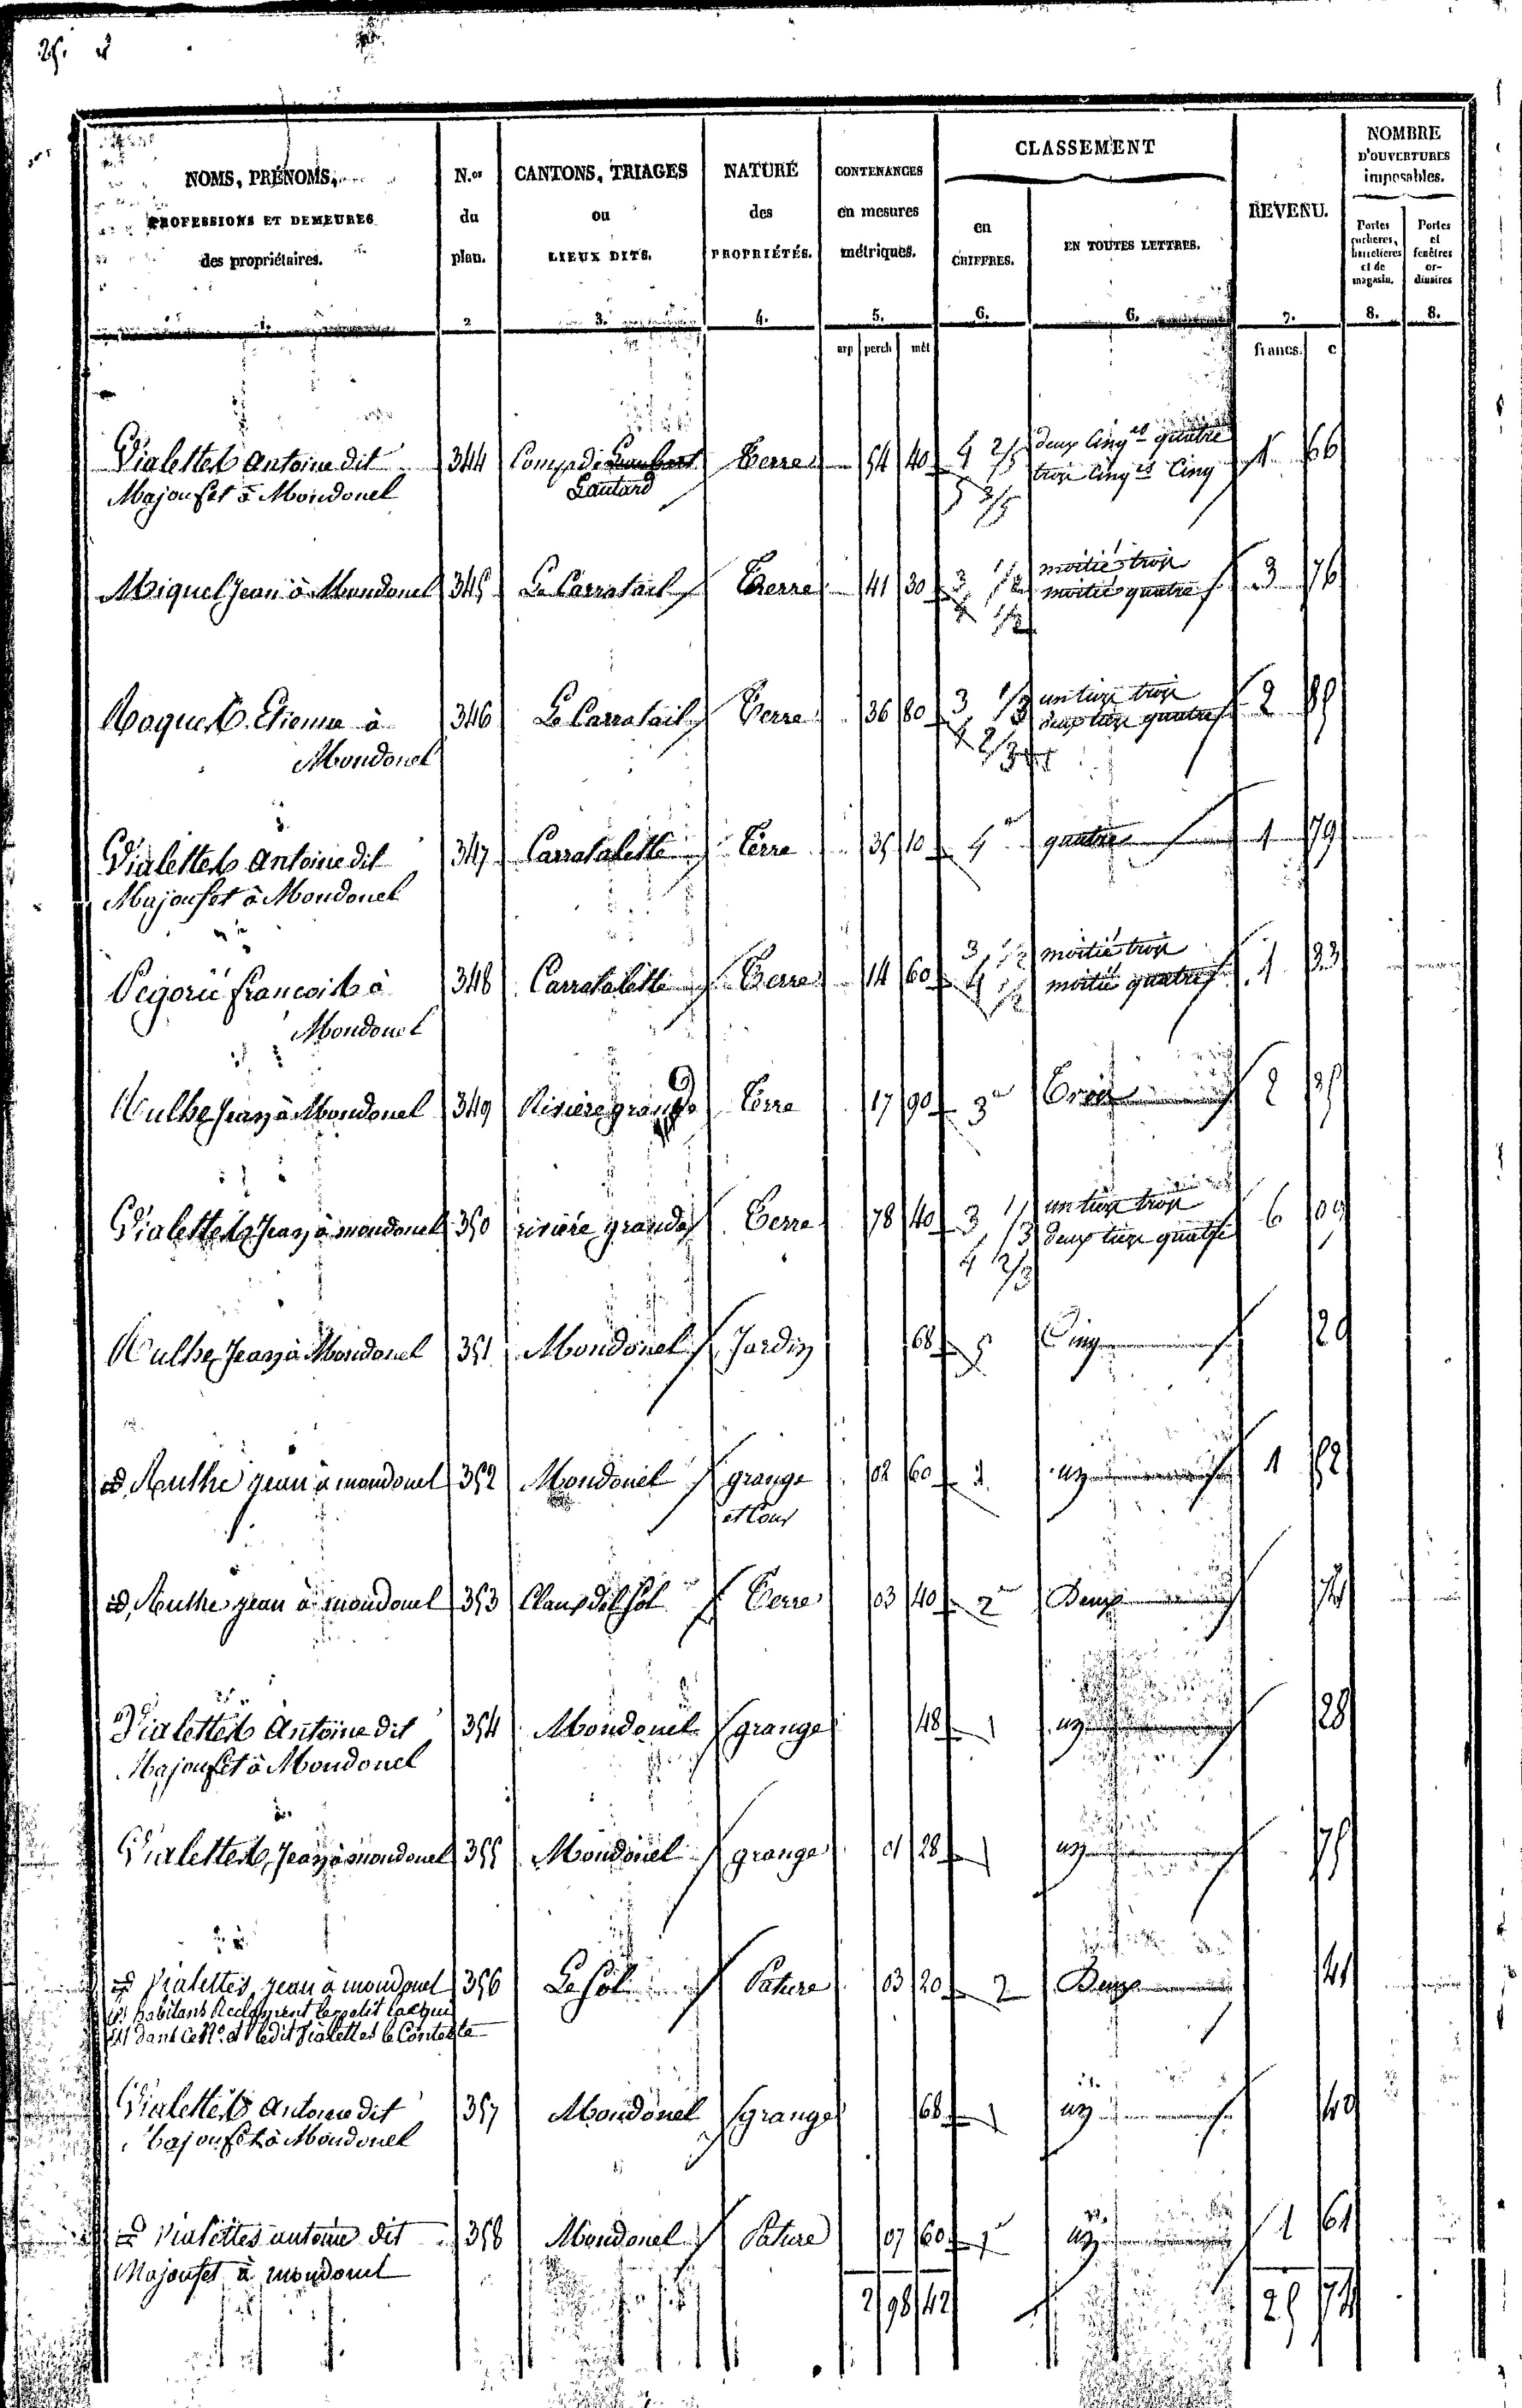 25.
NOMS, PRÉNOMS,
PROFESSIONS ET DEMEURES
des propriétaires.
1.
N.os
du
plan.
2
CANTONS, TRIAGES
ou
LIEUX DITS.
3.
NATURE
des
PROPRIÉTÉS.
4.
CONTENANCES
en mesures
métriques.
5.
CLASSEMENT
en
CHIFFRES.
6.
EN TOUTES LETTRES.
6.
REVENU.
7.
NOMBRE
D'OUVERTURES
imposables.
Portes
cocheres,
et de
magasin.
8.
Portes
et
fenêtres
or-
dinaires
8.
arp perch mèt francs. c
Vialettes Antoine dit 344 Terre 54 40 4 2/5 deux cinq es quatre 1 66
Majouset à Mondonel Lautard 5 3/5 trois cinq es cinq
Miquel Jean à Mondonel 345 Le Carratail Terre 41 30 3 1/2 moitié trois 3 76
4 1/2 moitié quatre
Roques Etienne à 346 Le Carratail Terre 36 80 3 1/3 un tiers trois 2 85
Mondonel 4 2/3 deux tiers quatre
Vialettes Antoine dit 347 Carratalette Terre 35 10 4 quatre 1 79
Majouset à Mondonel
Pégorié francois à 348 Carratalette Terre 14 60 3 1/2 moitié trois 1 33
Mondonel 4 1/2 moitié quatre
Jean à Mondonel 349 Rivière grande Terre 17 90 3 Trois 2 35
Vialettes Jean à mondonel 350 rivière grande Terre 78 40 3 1/3 un tiers trois 6 09
4 2/3 deux tiers quatre
Jean à Mondonel 351 Mondonel Jardin 68 5 Cinq 20
id. jean à mondonel 352 Mondonel grange 02 60 1 un 1 52
et Cour
id. jean à mondonel 353 Claux del Sol Terre 03 40 2 Deux 74
Vialettes Antoine dit 354 Mondonel grange 48 1 un 28
Majouset à Mondonel
Vialettes Jean à mondonel 355 Mondonel grange 01 28 1 un 75
id. Vialettes jean à mondonel 356 Le Sol Pature 03 20 2 Deux 41
habitans Reclament le petit Lac qui
est dans ce No. et ledit Vialettes le Conteste
Vialettes Antoine dit 357 Mondonel grange 68 1 un 40
Majouset à Mondonel
id. Vialettes antoine dit 358 Mondonel Pature 07 60 1 un 1 61
Majouset à mondonel
2 98 42 25 74